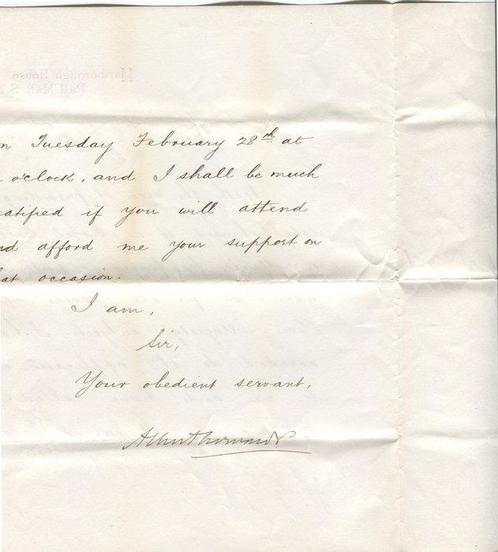 Marlborough House
Pall Mall. S.
n Tuesday February 28th at
o'clock, and I shall be much
ratified if you will attend
nd afford me your support on
hat occasion.
I am,
Sir,
Your obedient servant,